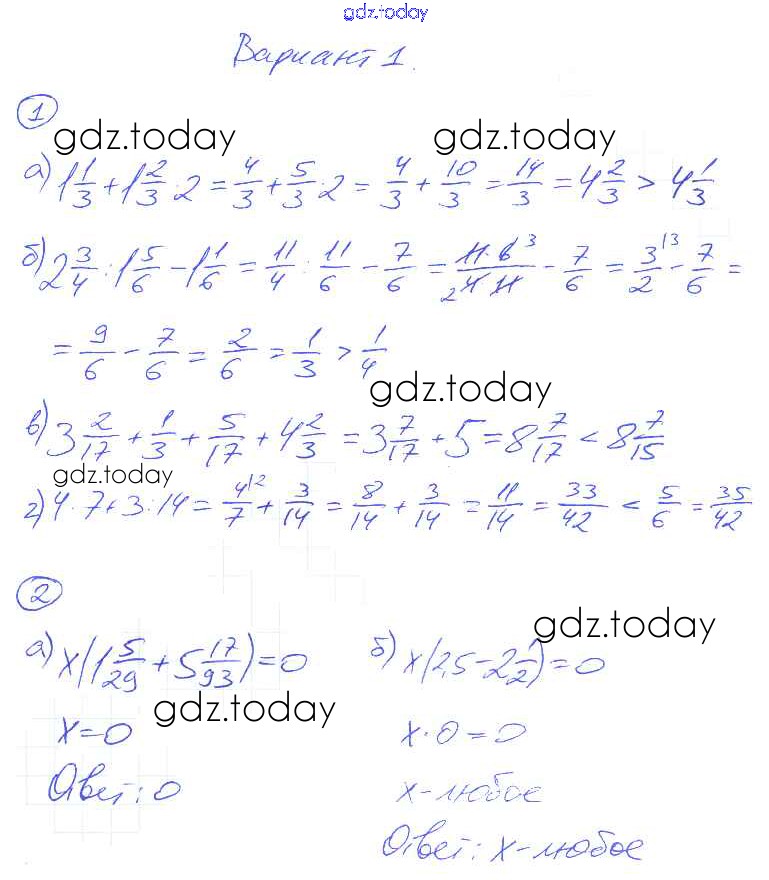 gdz.today
Вариант 1.
1
gdz.today gdz.today
а) 1 1/3 + 1 2/3 · 2 = 4/3 + 5/3 · 2 = 4/3 + 10/3 = 14/3 = 4 2/3 > 4 1/3
б) 2 3/4 : 1 5/6 − 1 1/6 = 11/4 : 11/6 − 7/6 = 11·6 3/2 4·11 − 7/6 = 3/2 |3 − 7/6 =
= 9/6 − 7/6 = 2/6 = 1/3 > 1/4
gdz.today
в) 3 2/17 + 1/3 + 5/17 + 4 2/3 = 3 7/17 + 5 = 8 7/17 < 8 7/15
gdz.today
г) 4 : 7 + 3 : 14 = 4/7 |2 + 3/14 = 8/14 + 3/14 = 11/14 = 33/42 < 5/6 = 35/42
2
gdz.today
а) x(1 5/29 + 5 17/93) = 0
б) x(2,5 − 2 1/2) = 0
gdz.today
x = 0
x · 0 = 0
Ответ: 0
x − любое
Ответ: x − любое